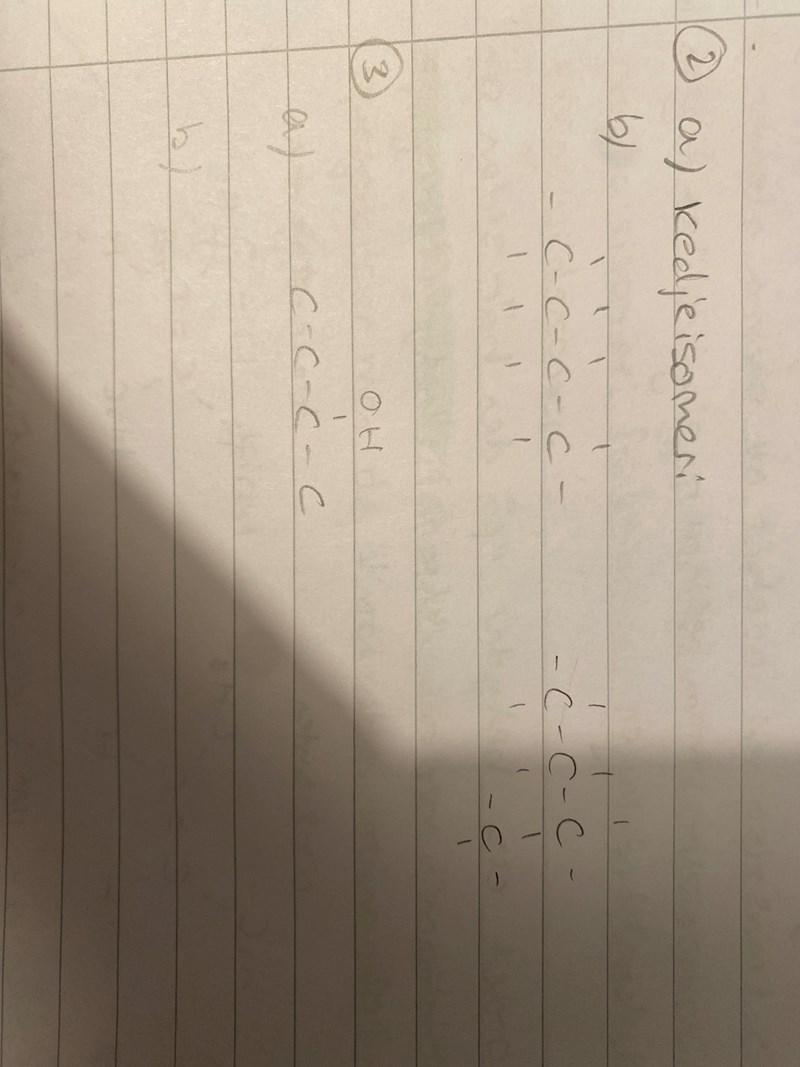 ② a) Kedjeisomeri
b)
- C - C - C - C -    - C - C - C -
- C -
③
OH
a) C - C - C - C
b)